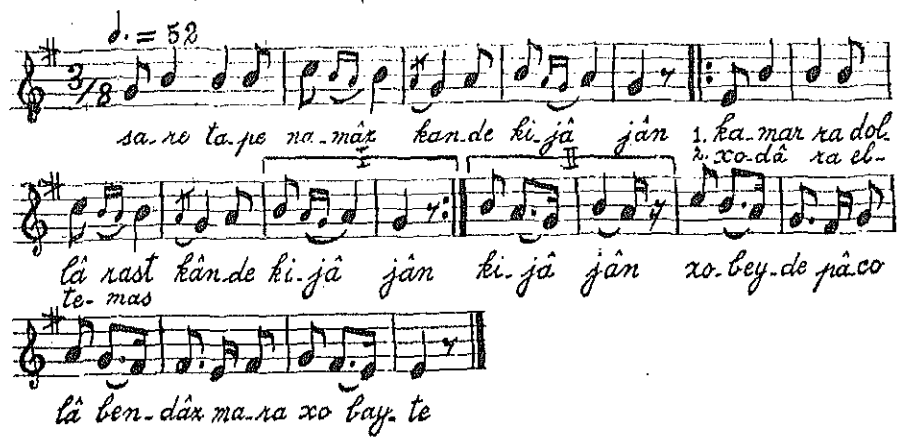 ♩. = 52
3/8
sa-re ta-pe na-mâz kan-de ki-jâ jân 1. ka-mar ra dol-
2. xo-dâ ra el-
I II
lâ rast kân-de ki-jâ jân ki-jâ jân xo-bey-de pâ-co
te-mas
lâ ben-dâz ma-ra xo bay-te